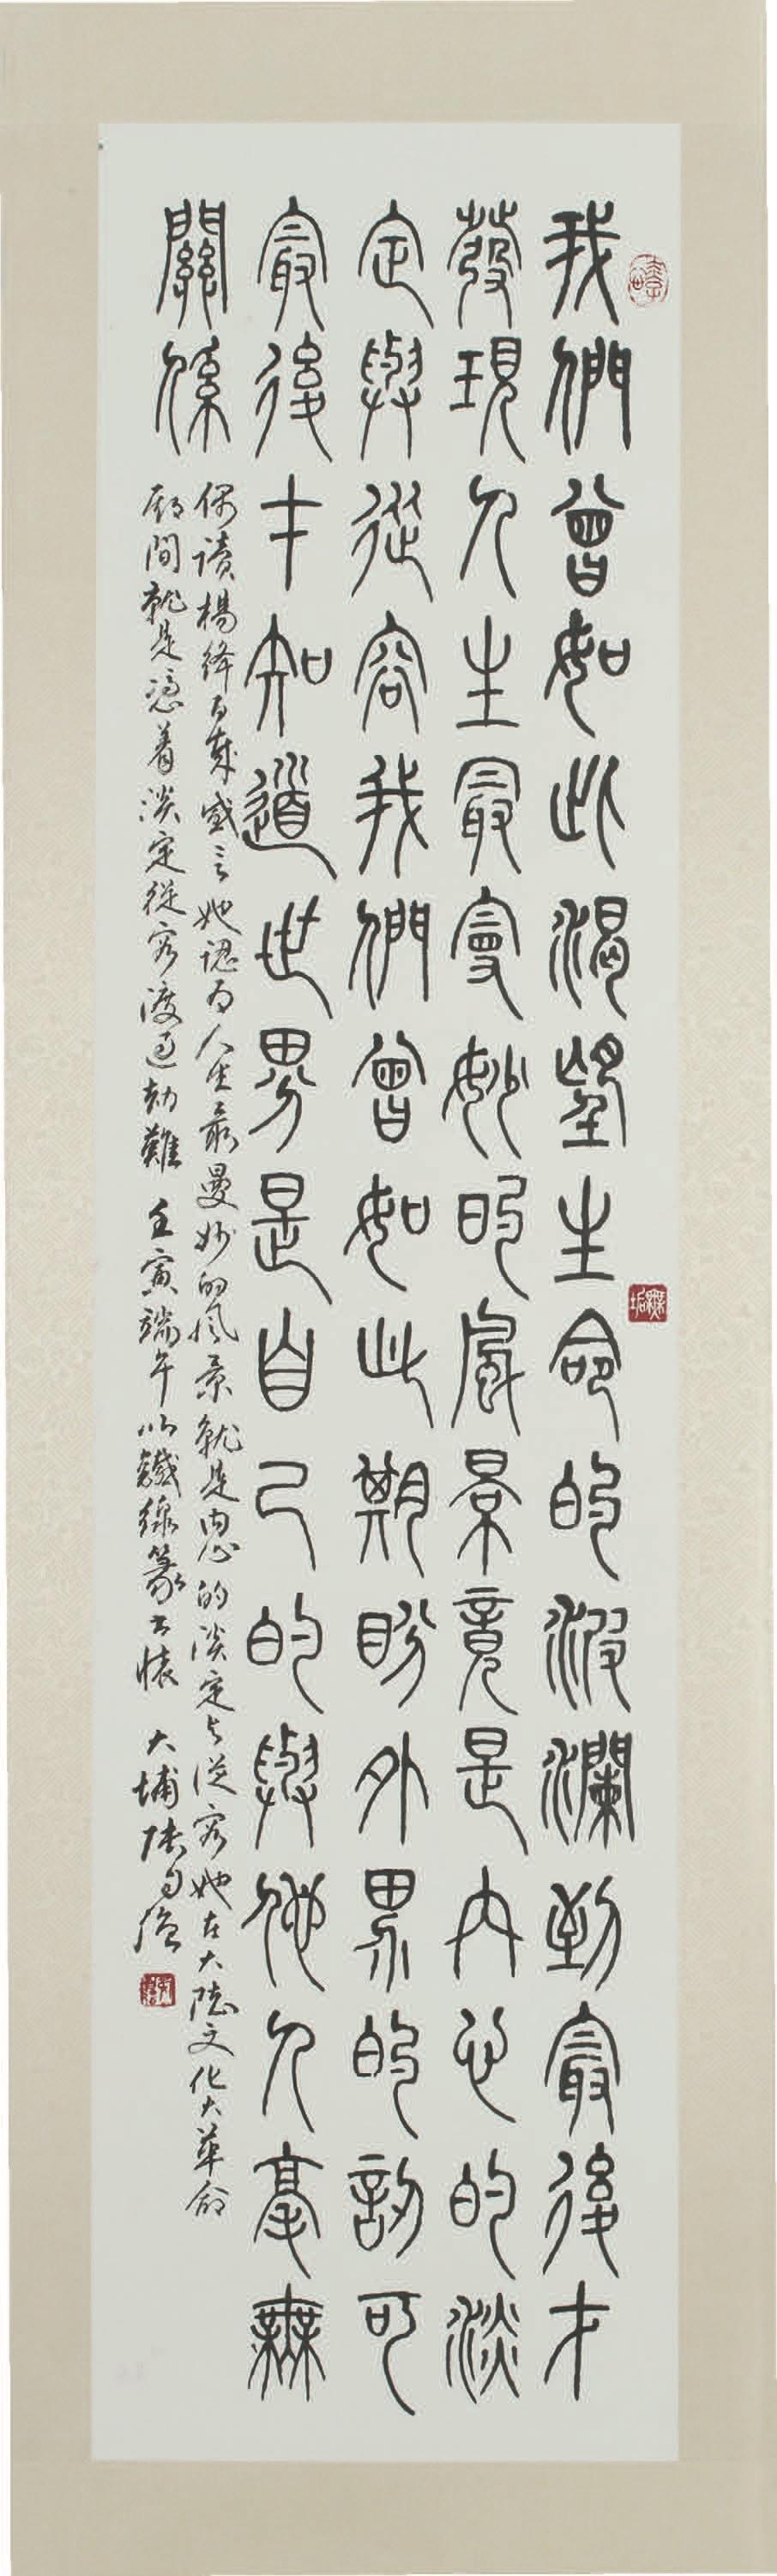 我們曾如此渴望生命的波瀾到最後才
發現人生最曼妙的風景竟是內心的淡
定與從容我們曾如此期盼外界的認可
最後才知道世界是自己的與他人毫無
關係
偶讀楊絳百歲感言她認為人生最曼妙的風景就是內心的淡定与從容她在大陸文化大革命
期間就是憑着淡定從容渡過劫難 壬寅端午以鐵線篆書懷 大埔
無垢